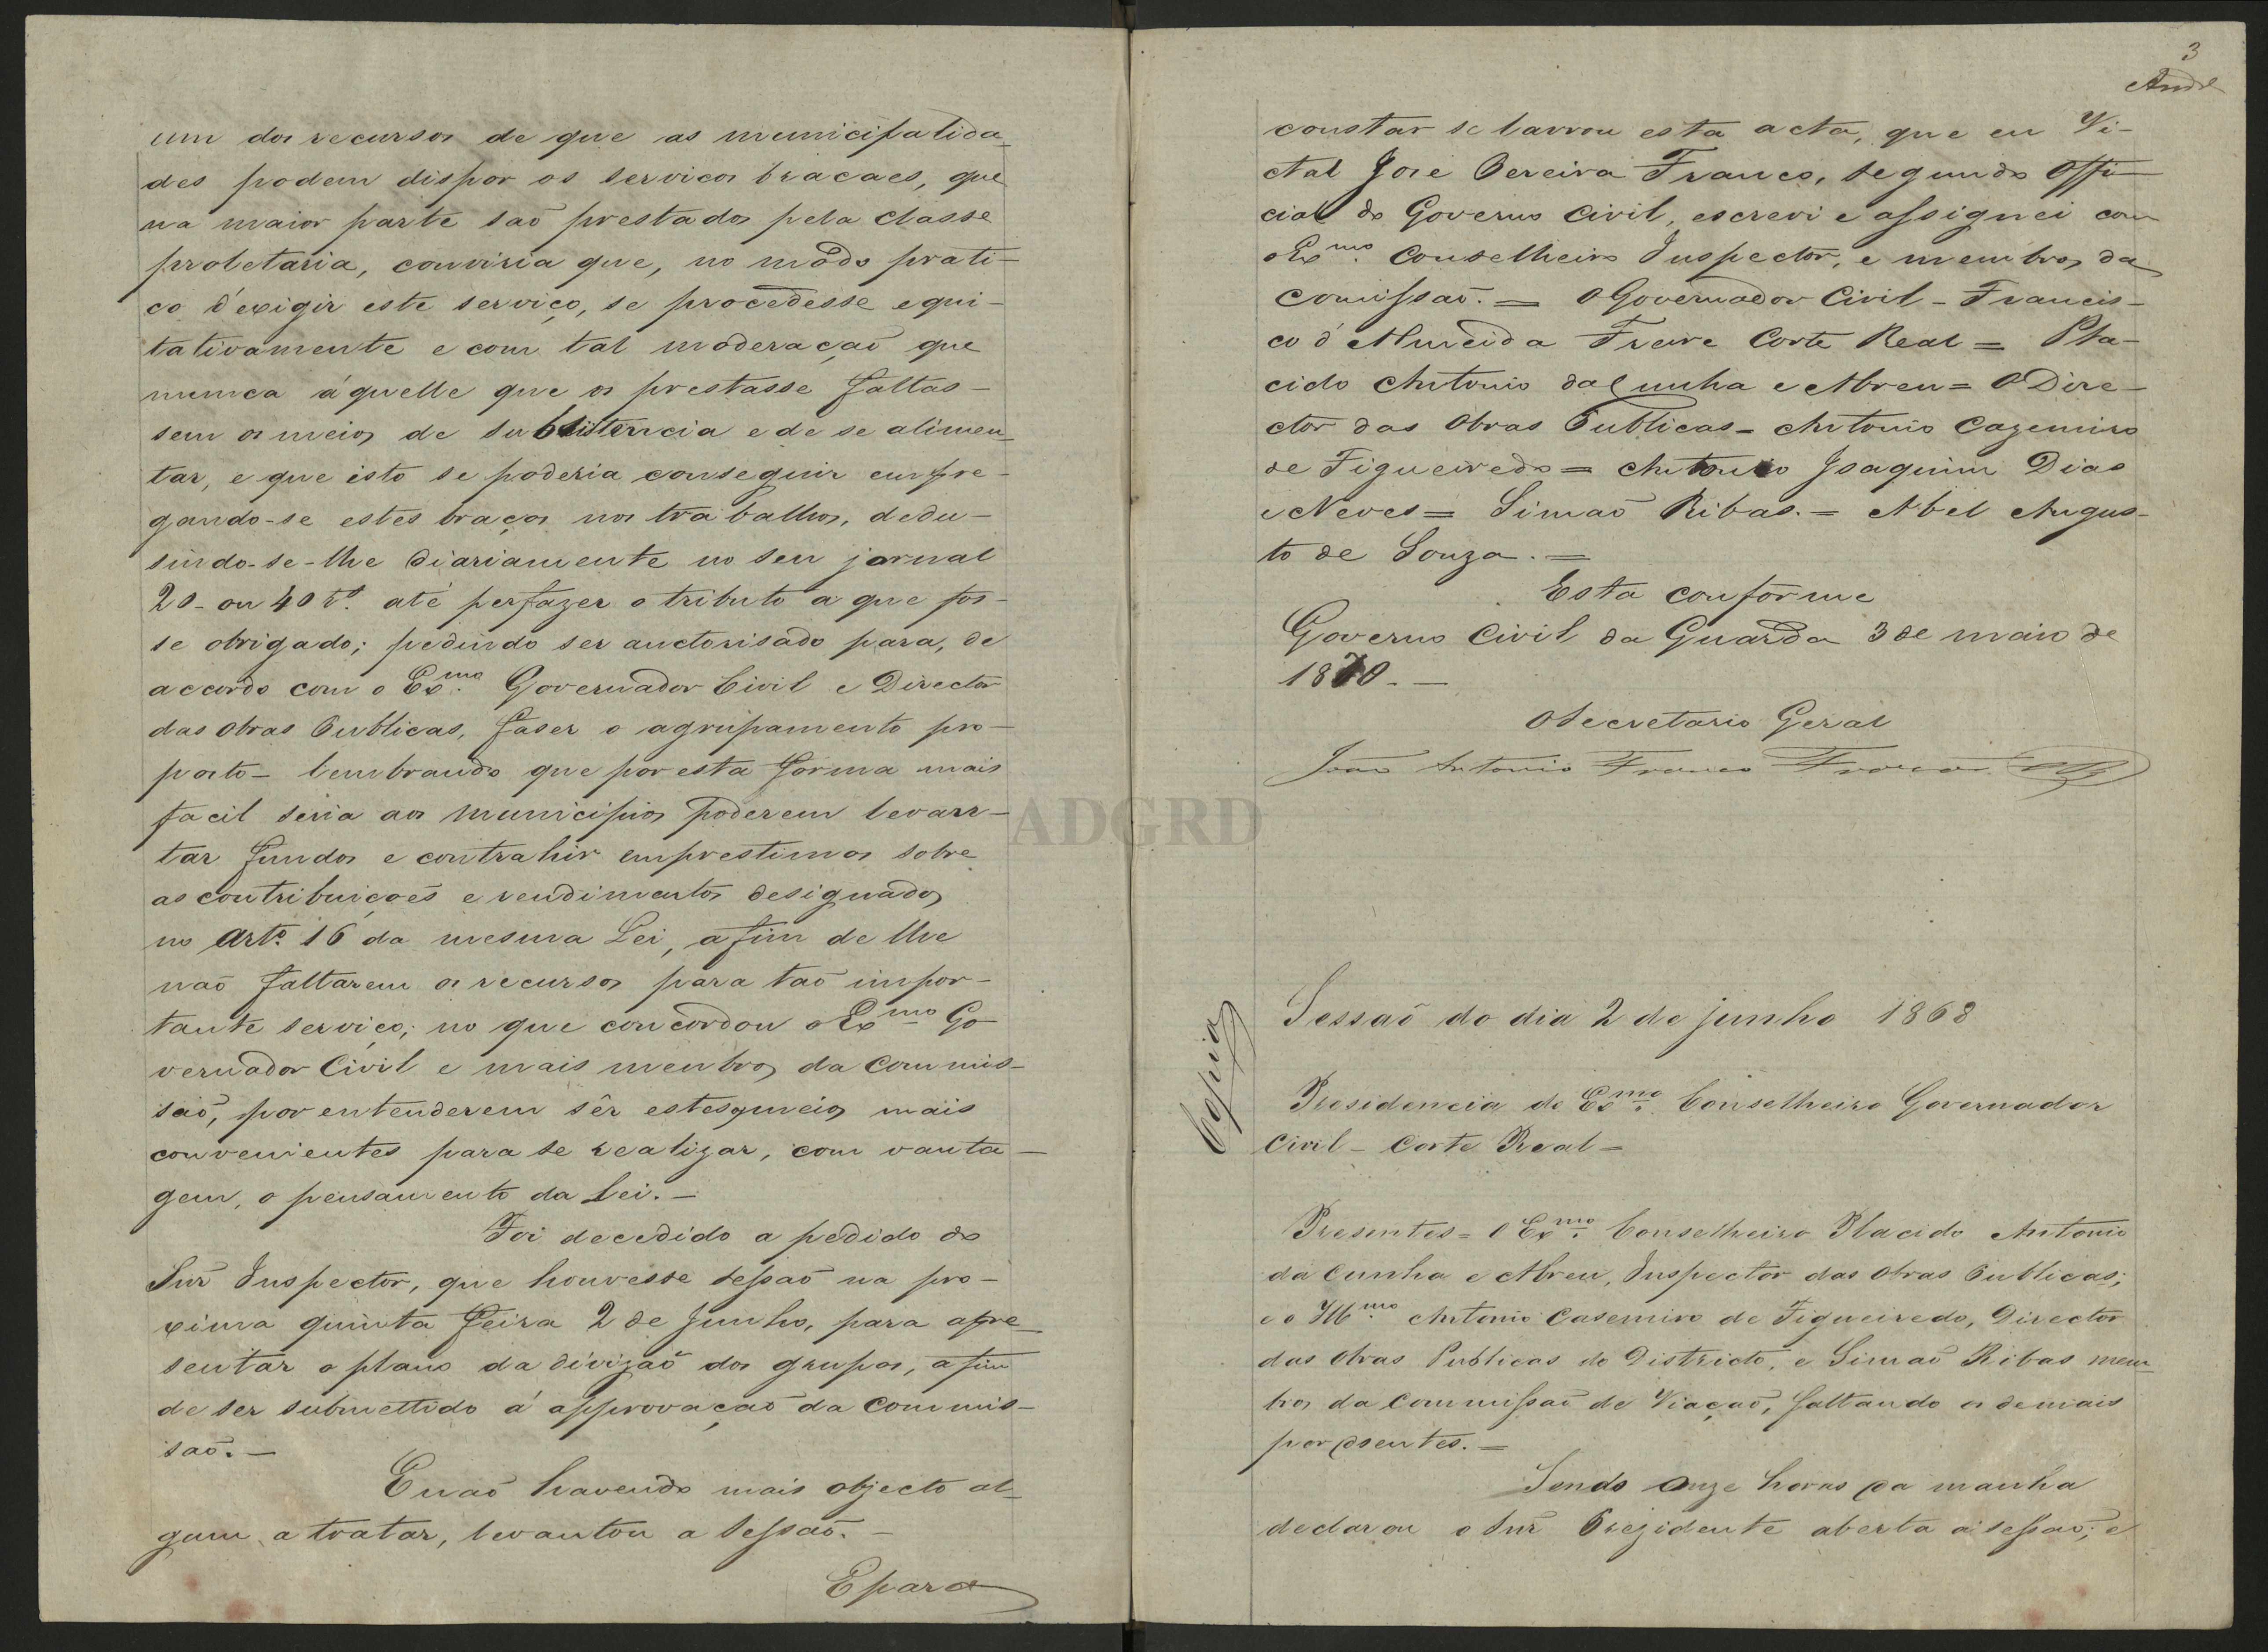 um dos recursos de que as municipalida-
des podem dispor os serviços braçaes, que
na maior parte saõ prestados pela classe
proletaria, conviria que, no módo prati-
co d'exigir este serviço, se procedesse equi-
tativamente e com tal moderaçaõ que
nunca áquelle que os prestasse faltas-
sem os meios de subsistencia e de se alimen-
tar, e que isto se poderia conseguir empre-
gando-se estes braços nos trabalhos, dedu-
sindo-se-lhe diariamente no seu jornal
20- ou 40 rs. até perfazer o tributo a que fos-
se obrigado; pedindo ser auctorisado para, de
accordo com o Exmo. Governador Civil e Director
das Obras Publicas, faser o agrupamento pro-
posto- lembrando que por esta forma mais
facil seria aos municipios poderem levan-
tar fundos e contrahir emprestimos sobre
as contribuiçoẽs e rendimentos designados
no Arto. 16 da mesma Lei, afim de lhe
naõ faltarem os recursos para taõ impor-
tante serviço; no que concordou o Exmo Go-
vernador Civil e mais membros da Commis-
saõ, por entenderem sêr estes os meios mais
convenientes para se realizar, com vanta-
gem, o pensamento da Lei.-
Foi decedido a pedido do
Snr Inspector, que houvesse sessaõ na pro-
xima quinta feira 2 de Junho, para apre-
sentar o plano da divizaõ dos grupos, afim
de ser submettido á approvaçaõ da Commis-
saõ.-
E naõ havendo mais objecto al-
gum a tratar, levantou a Sessaõ.-
E para
3
Andre
constar se lavrou esta acta, que eu Vi-
ctal José Pereira Franco, segundo Offi-
cial do Governo Civil, escrevi e assignei com
o Exmo. Conselheiro Inspector, e membros da
Comissaõ. = O Governador Civil - Francis-
co d'Almeida Freire Corte Real = Pla-
cido Antonio da Cunha e Abreu = O Dire-
ctor das Obras Publicas - Antonio Cazemiro
de Figueiredo = Antonio Joaquim Dias
e Neves = Simaõ Ribas. = Abel Augus-
to de Souza. =
Esta conforme
Governo Civil da Guarda 3 de maio de
1870.-
O Secretario Geral
João Antonio Franco
ADGRD
Copia
Sessaõ do dia 2 de junho 1868
Presidencia do Exmo. Conselheiro Governador
Civil - Corte Real =
Presentes = O Exmo. Conselheiro Placido Antonio
da Cunha e Abreu, Inspector das Obras Publicas;
e o Illmo. Antonio Casemiro de Figueiredo, Director
das Obras Publicas do Districto, e Simaõ Ribas mem-
bros da Commissaõ de Viaçaõ, faltando os demais
por ausentes. =
Sendo onze horas da manha
declarou o Snr Prezidente aberta a sessaõ; e